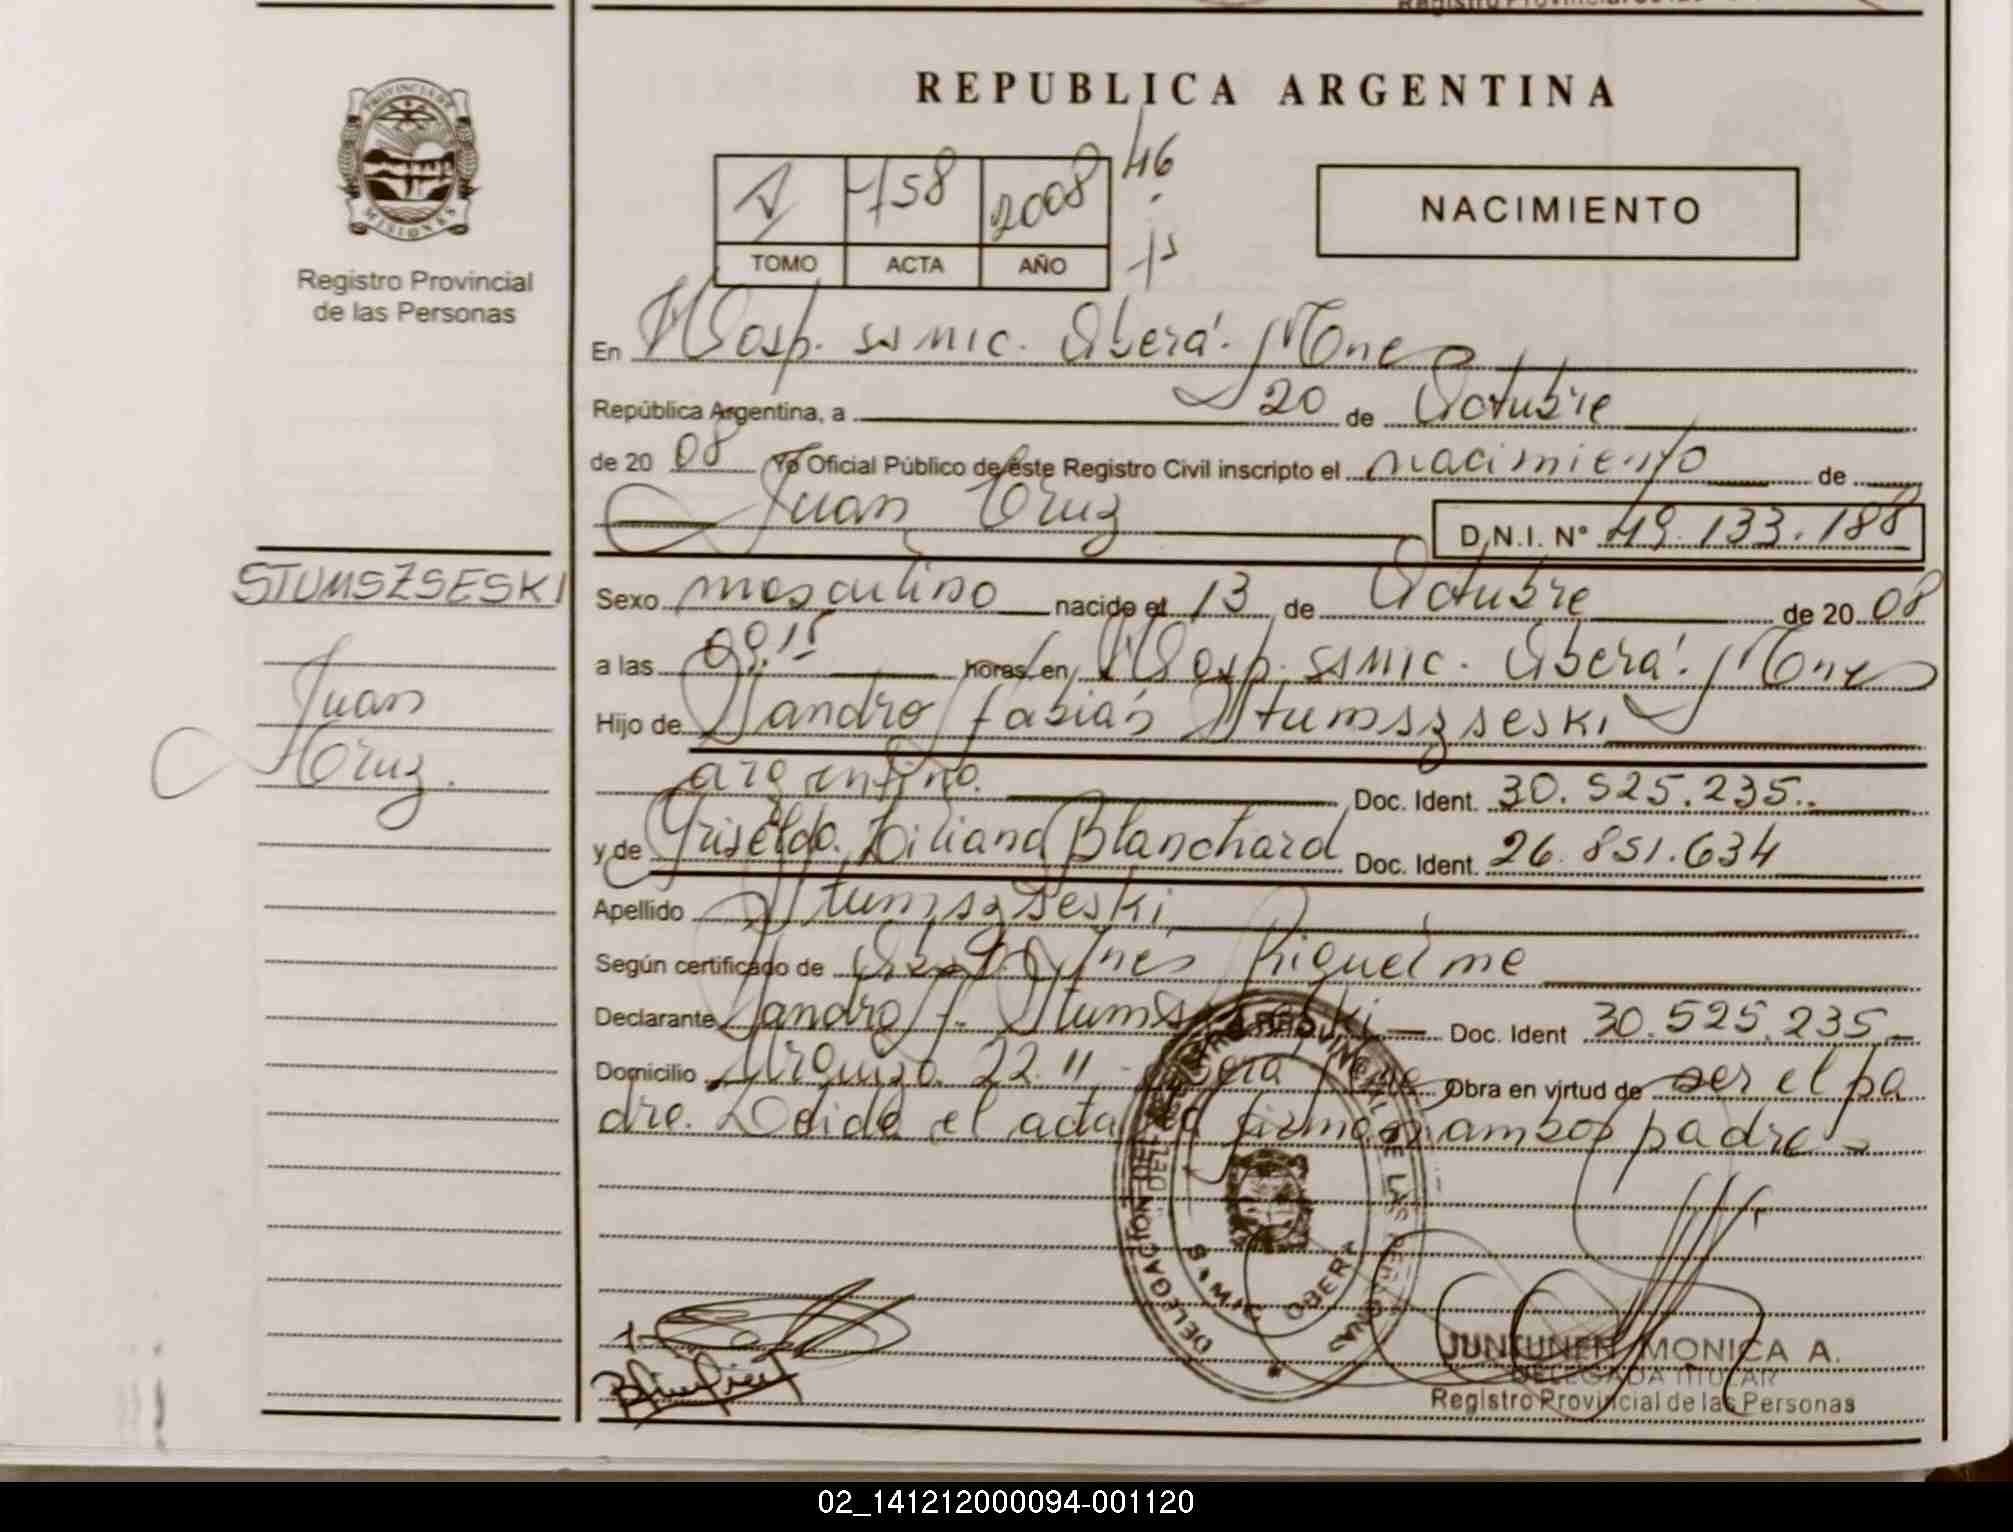 REPUBLICA ARGENTINA
PROVINCIA DE
MISIONES
Registro Provincial
de las Personas
758 2008 46
TOMO ACTA AÑO
NACIMIENTO
En Hosp. ssmic. Oberá. Mnes
República Argentina, a 20 de Octubre
de 20 08 Yo Oficial Público de este Registro Civil inscripto el nacimiento de
Juan Cruz D.N.I. N° 49.133.188
STUMSZSESKI
Juan
Cruz.
Sexo masculino nacido el 13 de Octubre de 20 08
a las 00 15 horas, en Hosp. ssmic. Oberá. Mnes
Hijo de Sandro fabián Stumszseski
argentino. Doc. Ident. 30.525.235.
y de Griselda Liliana Blanchard Doc. Ident. 26.851.634
Apellido Stumszseski
Según certificado de Obst. Ines Riquelme
Declarante Sandro f. Stumszseski Doc. Ident 30.525.235
Domicilio Urquiza 22 11 - Oberá Mnes Obra en virtud de ser el pa
dre. Leida el acta la firman ambos padres
DELEGACION DEL REGISTRO PROVINCIAL DE LAS PERSONAS
OBERA
JUNTUNEN MONICA A.
DELEGADA TITULAR
Registro Provincial de las Personas
02_141212000094-001120